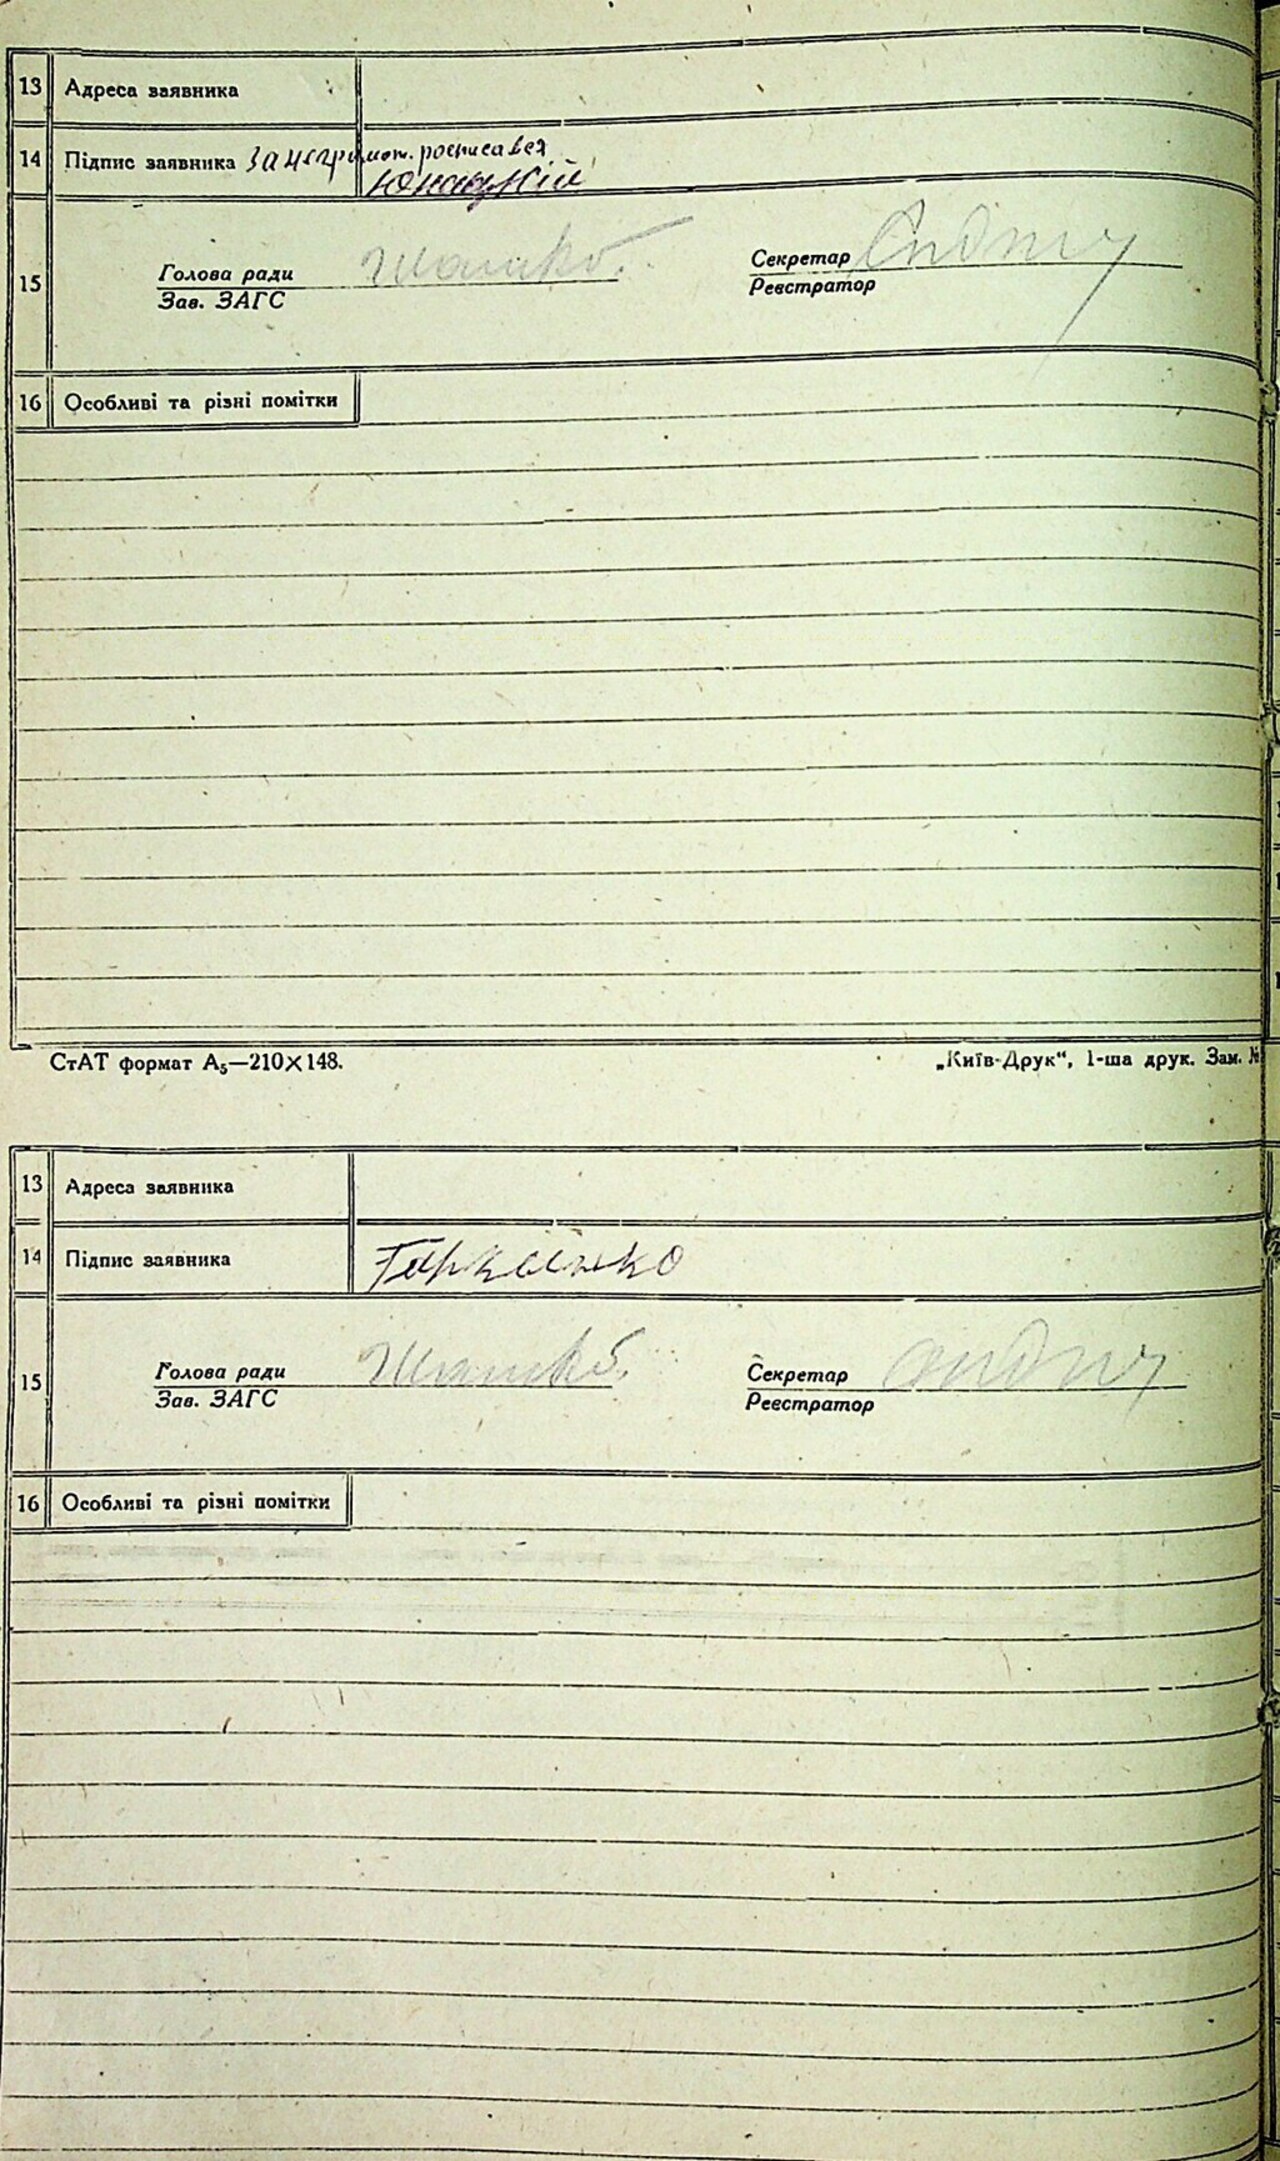 13 Адреса заявника
14 Підпис заявника За неграмот. росписався
Юнацкій
15 Голова ради Секретар
Зав. ЗАГС Реєстратор
16 Особливі та різні помітки
СтАТ формат А₅—210×148. „Київ-Друк“, 1-ша друк. Зам. №
13 Адреса заявника
14 Підпис заявника
15 Голова ради Секретар
Зав. ЗАГС Реєстратор
16 Особливі та різні помітки